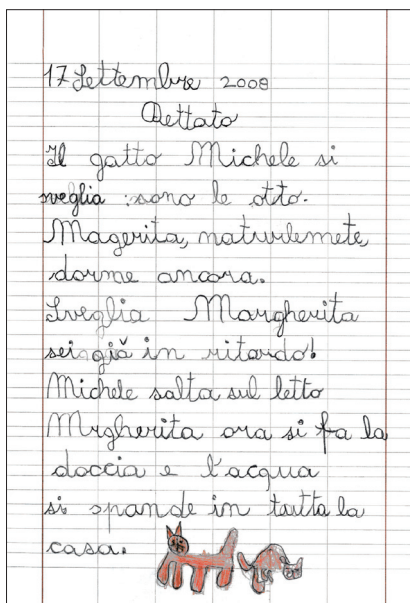 17 Settembre 2008
Dettato
Il gatto Michele si
sveglia : sono le otto.
Magerita, naturlemete,
dorme ancora.
Sveglia Margherita
sei già in ritardo!
Michele salta sul letto
Mrgherita ora si fa la
doccia e l'acqua
si spande in tutta la
casa.